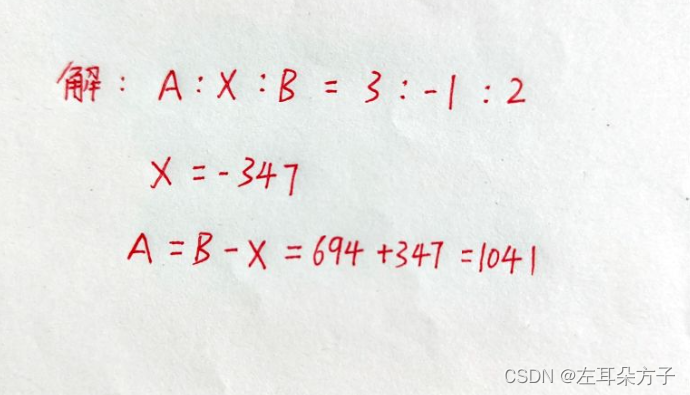 解: A:X:B = 3:-1:2
X = -347
A = B - X = 694 + 347 = 1041
CSDN @左耳朵方子